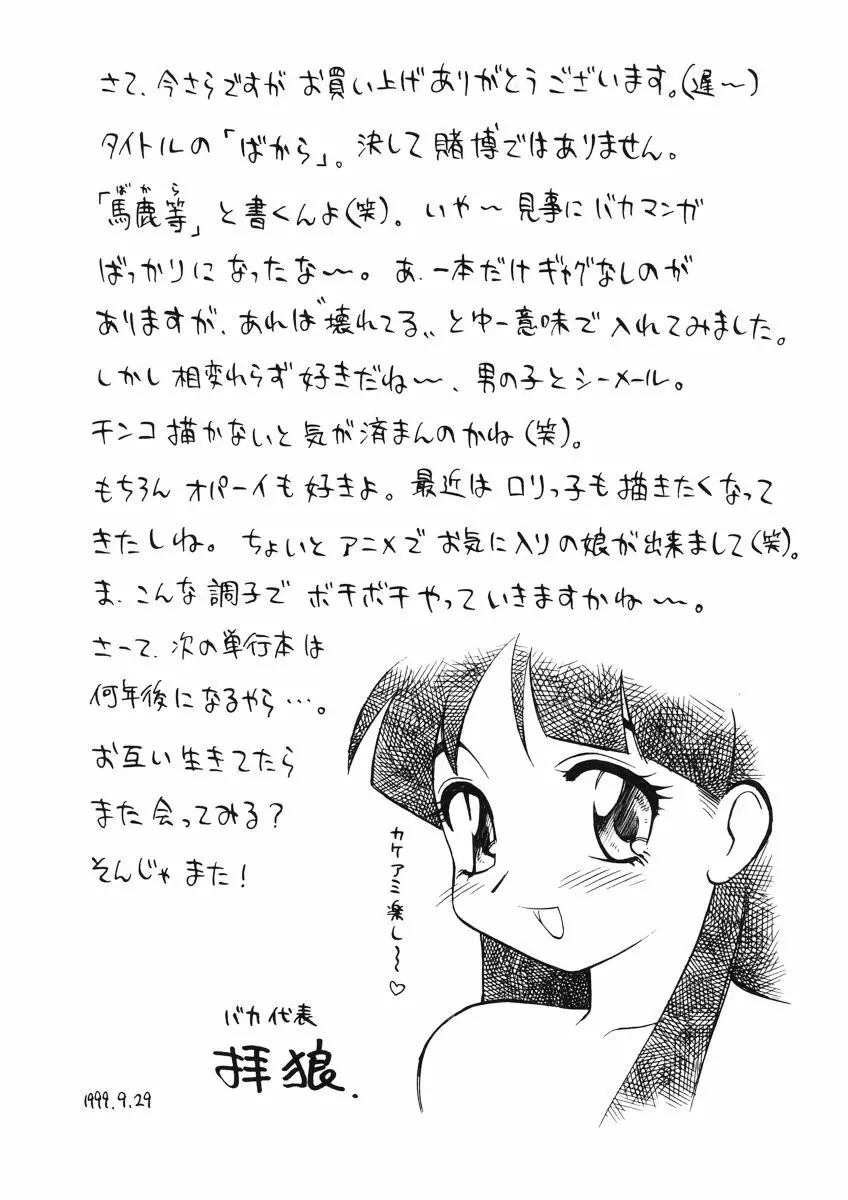 さて、今さらですが お買い上げありがとうございます。(遅〜)
タイトルの「ばから」。決して賭博ではありません。
ばから
「馬鹿等」と書くんよ(笑)。いや〜見事にバカマンガ
ばっかりになったな〜。あ、一本だけギャグなしのが
ありますが、あれは〝壊れてる〟とゆー意味で入れてみました。
しかし相変わらず好きだね〜、男の子とシーメール。
チンコ描かないと気が済まんのかね(笑)。
もちろんオパーイも好きよ。最近はロリっ子も描きたくなって
きたしね。ちょいとアニメでお気に入りの娘が出来まして(笑)。
ま、こんな調子でボチボチやっていきますかね〜。
さーて、次の単行本は
何年後になるやら…。
お互い生きてたら
また会ってみる?
そんじゃまた!
カケアミ楽し〜♡
バカ代表
拝狼.
1999.9.29